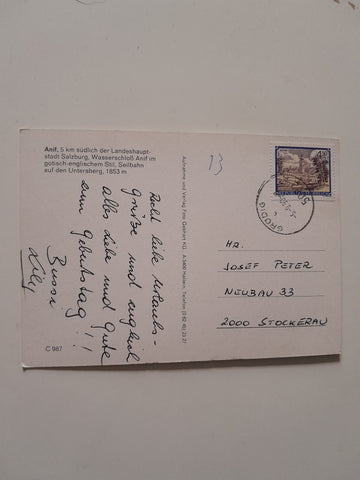 Anif, 5 km südlich der Landeshaupt-
stadt Salzburg, Wasserschloß Anif im
gotisch-englischem Stil, Seilbahn
auf den Untersberg, 1853 m
Recht liebe Urlaubs-
grüße und zugleich
alles Liebe und Gute
zum Geburtstag!!
Bussi
Lily
C 987
Aufnahme und Verlag Foto Gebhart KG. A-5400 Hallein, Telefon (0 62 45) 23 27
13
GRÖDIG
HR.
JOSEF PETER
NEUBAU 33
2000 STOCKERAU